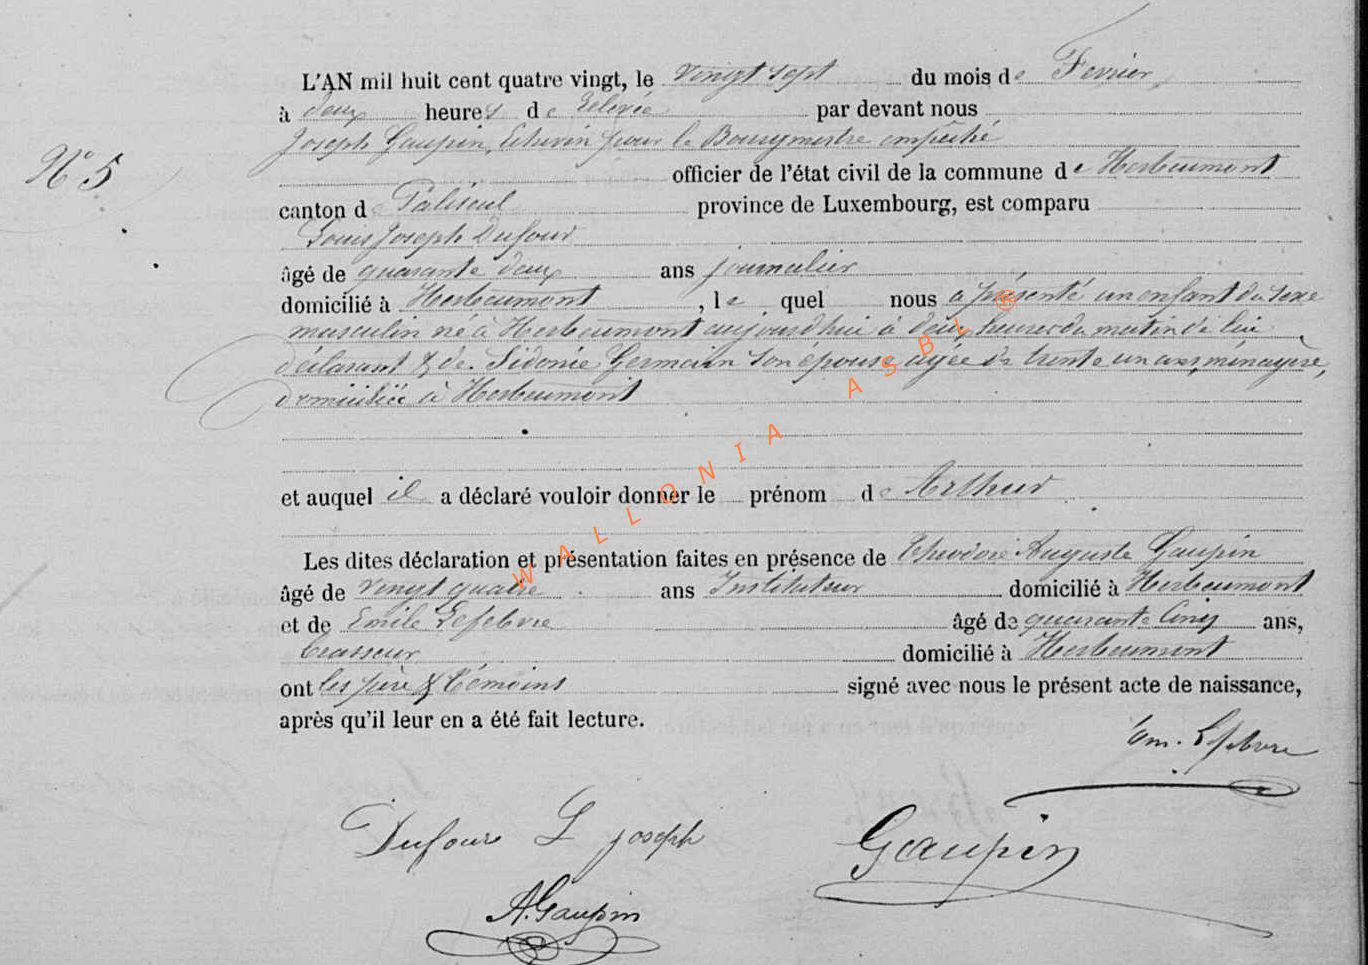 L'AN mil huit cent quatre vingt, le vingt sept du mois de Fevrier
à deux heures de relevée par devant nous
Joseph Gaupin, Echevin pour le Bourgmestre empêché
N° 5
officier de l'état civil de la commune de Herbeumont
canton de Paliseul province de Luxembourg, est comparu
Louis Joseph Dufour
âgé de quarante deux ans journalier
domicilié à Herbeumont, le quel nous a présenté un enfant du sexe
masculin né à Herbeumont aujourd'hui à deux heures du matin de lui
déclarant & de Sidonie Germain son épouse, agée de trente un ans, ménagère,
domiciliée à Herbeumont
et auquel il a déclaré vouloir donner le prénom de Arthur
Les dites déclaration et présentation faites en présence de Théodore Auguste Gaupin
âgé de vingt quatre ans Instituteur domicilié à Herbeumont
et de Emile Lefebvre âgé de quarante cinq ans,
brasseur domicilié à Herbeumont
ont les père & témoins signé avec nous le présent acte de naissance,
après qu'il leur en a été fait lecture.
Em. Lefebvre
Dufour L joseph
Gaupin
A. Gaupin
WALLONIA ASBL ®